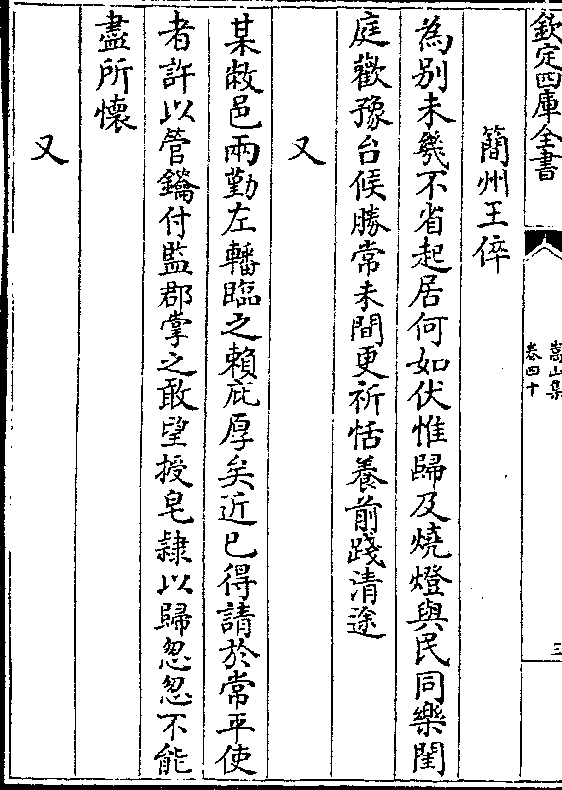 欽定四庫全書
嵩山集
卷四十
三
簡州王倅
為别未幾不省起居何如伏惟歸及燒燈與民同樂閨
庭歡豫台候勝常未間更祈恬養前踐清途
又
某敝邑兩勤左轓臨之賴庇厚矣近已得請於常平使
者許以管鑰付監郡掌之敢望授皂隸以歸怱怱不能
盡所懷
又